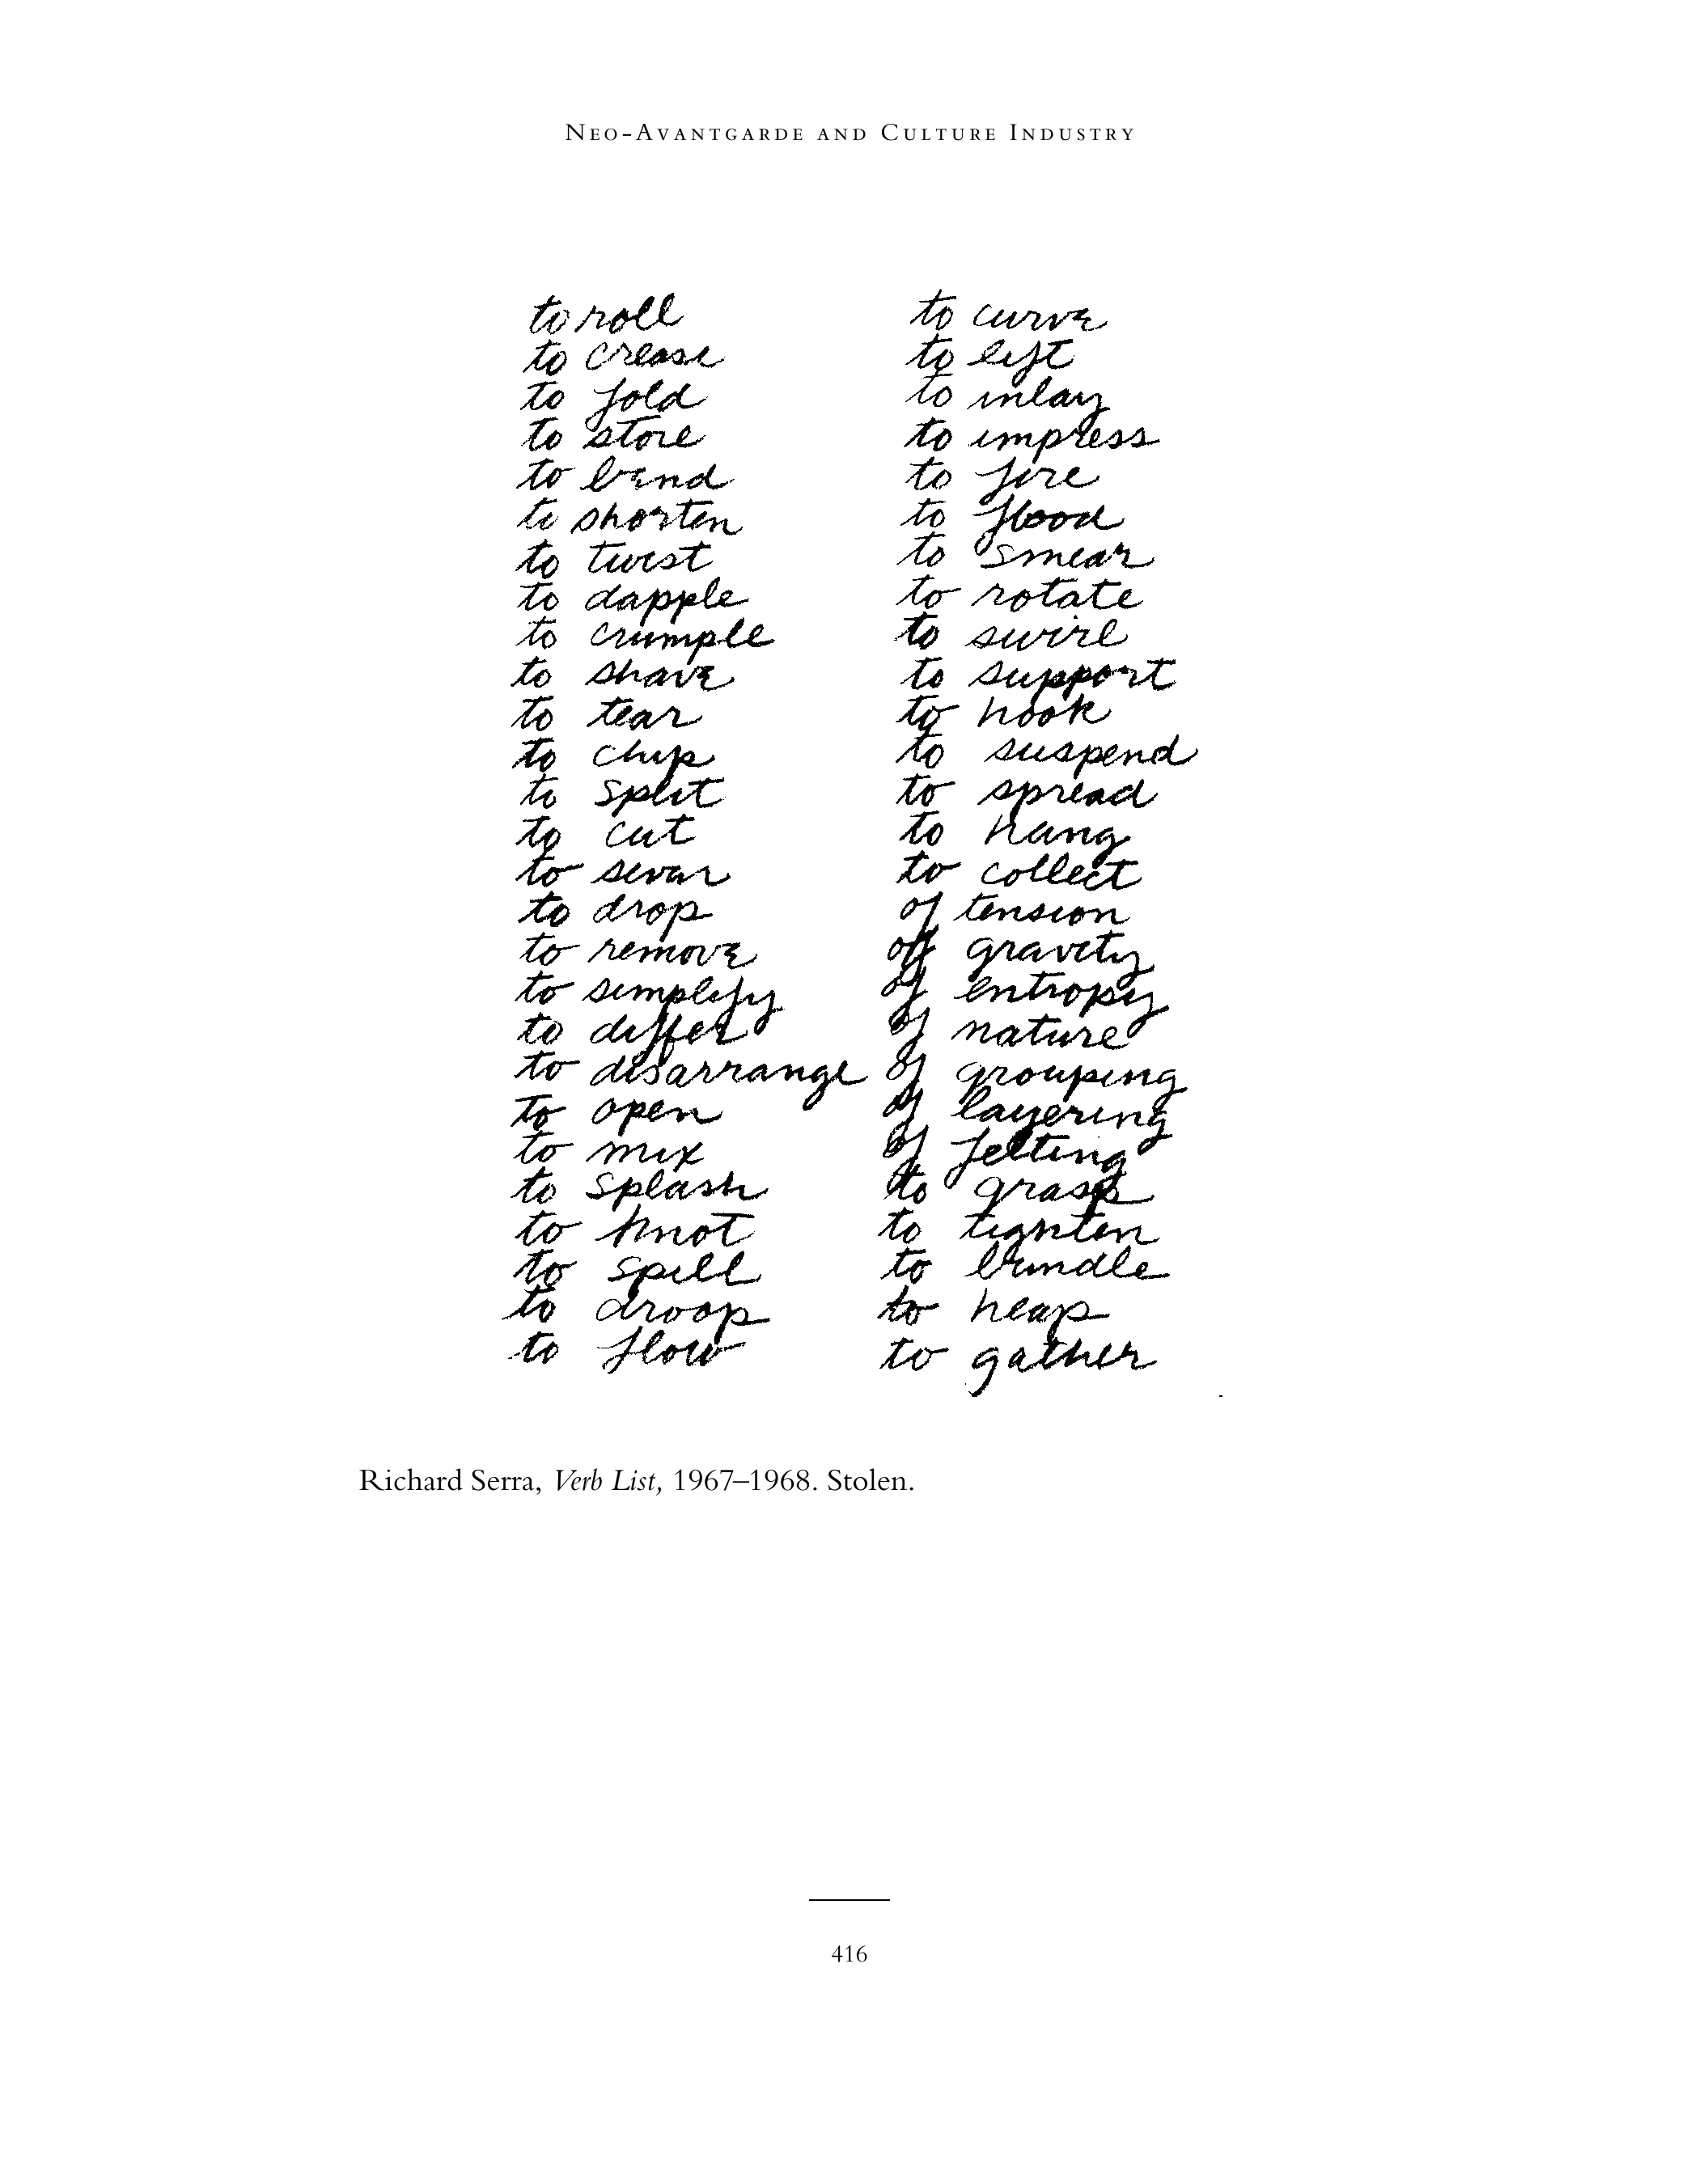 NEO-AVANTGARDE AND CULTURE INDUSTRY
to roll
to crease
to fold
to store
to bend
to shorten
to twist
to dapple
to crumple
to shave
to tear
to chip
to split
to cut
to sever
to drop
to remove
to simplify
to differ
to disarrange
to open
to mix
to splash
to knot
to spill
to droop
to flow
to curve
to lift
to inlay
to impress
to fire
to flood
to smear
to rotate
to swirl
to support
to hook
to suspend
to spread
to hang
to collect
of tension
of gravity
of entropy
of nature
of grouping
of layering
of felting
to grasp
to tighten
to bundle
to heap
to gather
Richard Serra, Verb List, 1967–1968. Stolen.
416